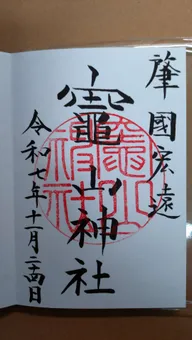 肇國宏遠
竈山神社
令和七年十一月二十四日
竈山神社